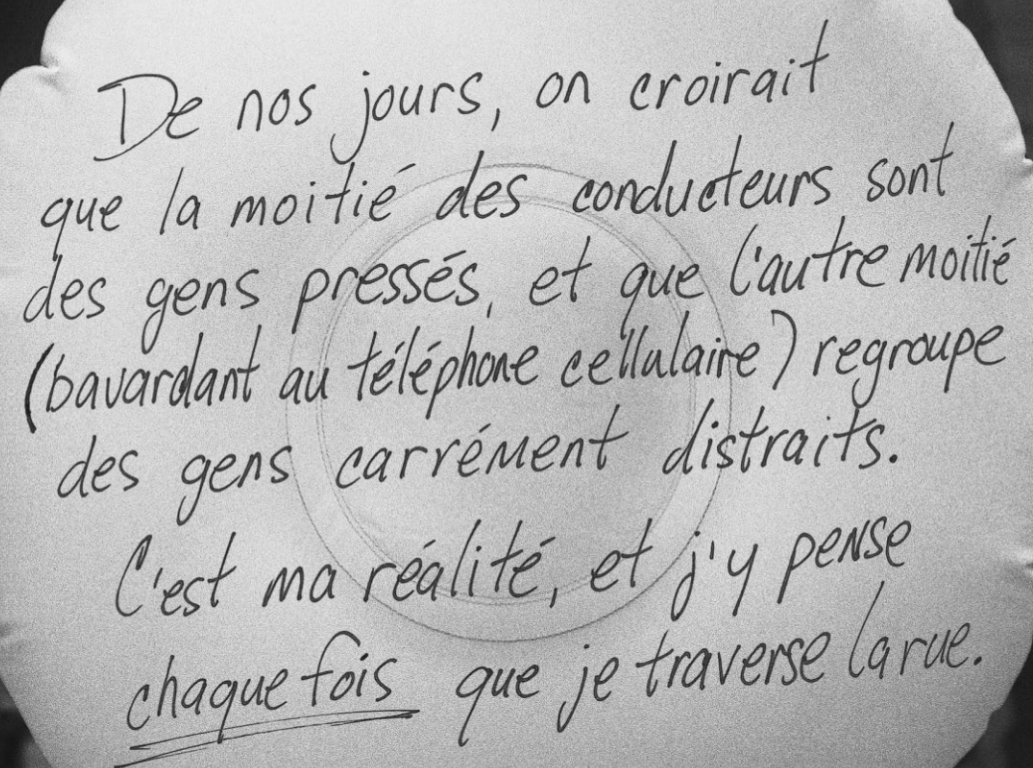 De nos jours, on croirait
que la moitié des conducteurs sont
des gens pressés, et que l'autre moitié
(bavardant au téléphone cellulaire) regroupe
des gens carrément distraits.
C'est ma réalité, et j'y pense
chaque fois que je traverse la rue.